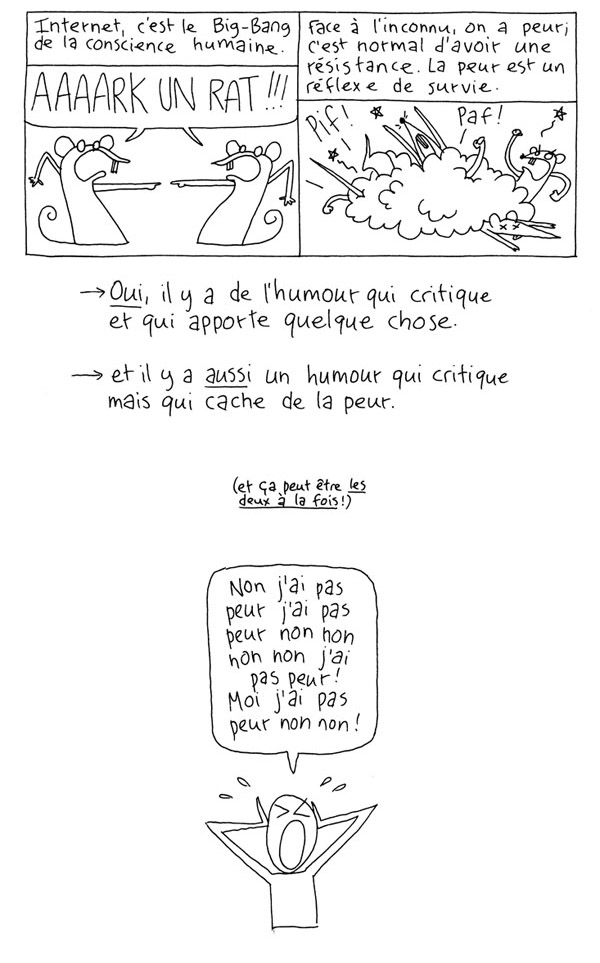 Internet, c'est le Big-Bang
de la conscience humaine.
AAAARK UN RAT!!!
Face à l'inconnu, on a peur;
c'est normal d'avoir une
résistance. La peur est un
réflexe de survie.
Pif!
Paf!
→ Oui, il y a de l'humour qui critique
et qui apporte quelque chose.
→ et il y a aussi un humour qui critique
mais qui cache de la peur.
(et ça peut être les
deux à la fois!)
Non j'ai pas
peur j'ai pas
peur non non
non non j'ai
pas peur!
Moi j'ai pas
peur non non!